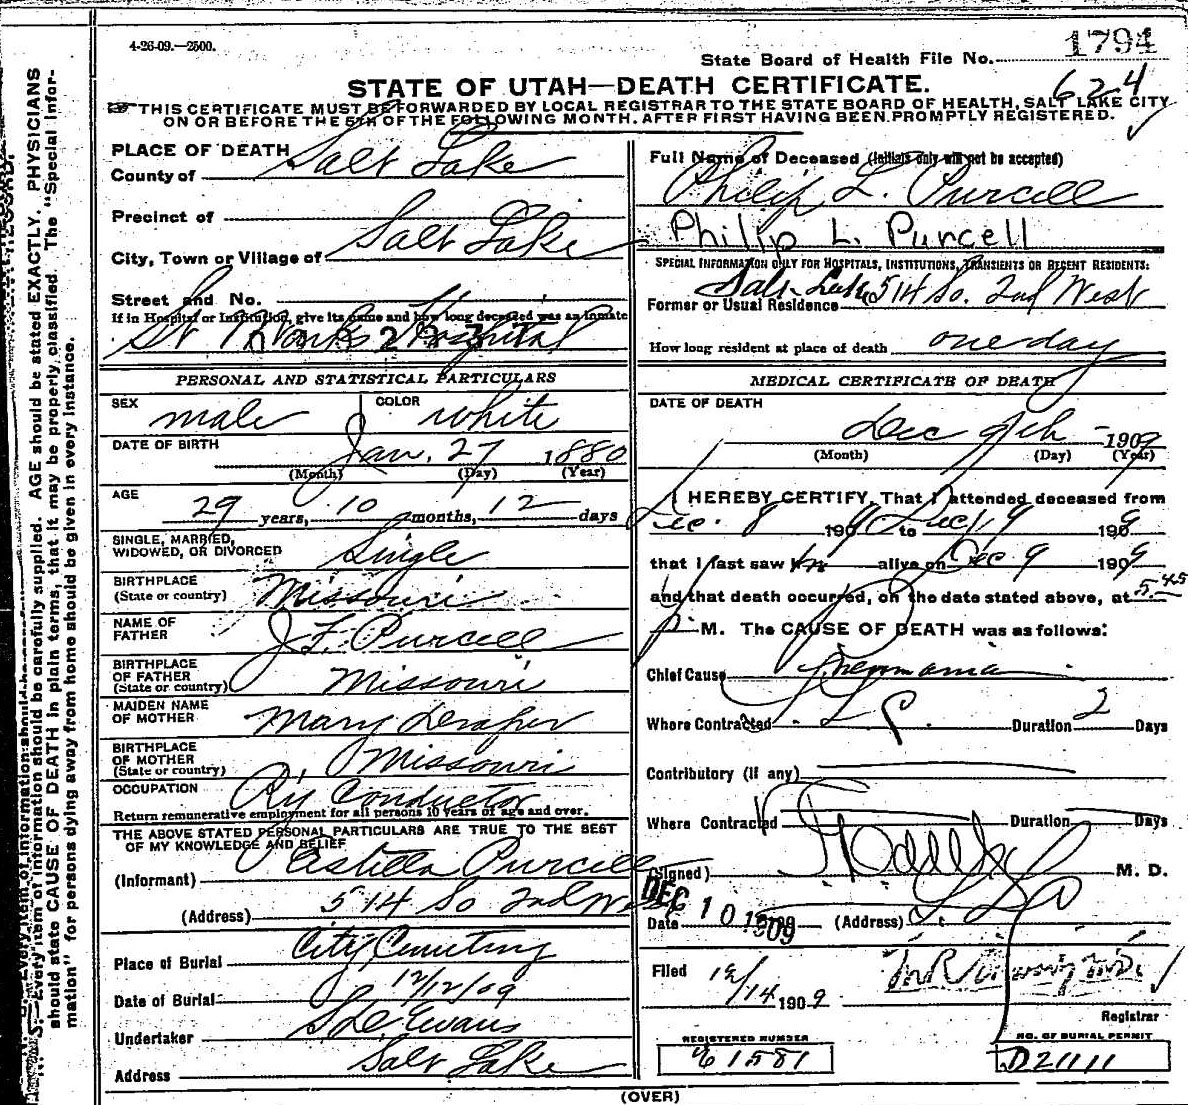 4-26-09.—2500.
1794
State Board of Health File No.
624
STATE OF UTAH—DEATH CERTIFICATE.
THIS CERTIFICATE MUST BE FORWARDED BY LOCAL REGISTRAR TO THE STATE BOARD OF HEALTH, SALT LAKE CITY
ON OR BEFORE THE 5TH OF THE FOLLOWING MONTH, AFTER FIRST HAVING BEEN PROMPTLY REGISTERED.
PLACE OF DEATH
County of Salt Lake
Precinct of
City, Town or Village of Salt Lake
Street and No.
If in Hospital or Institution, give its name and how long deceased was an inmate
St Marks Hospital
Full Name of Deceased (Initials only will not be accepted)
Philip L. Purcell
Philip L. Purcell
SPECIAL INFORMATION ONLY FOR HOSPITALS, INSTITUTIONS, TRANSIENTS OR RECENT RESIDENTS:
Former or Usual Residence Salt Lake 514 So. 2nd West
How long resident at place of death one day
PERSONAL AND STATISTICAL PARTICULARS
SEX male COLOR white
DATE OF BIRTH Jan. 27 1880
(Month) (Day) (Year)
AGE
29 years, 10 months, 12 days
SINGLE, MARRIED,
WIDOWED, OR DIVORCED Single
BIRTHPLACE
(State or country) Missouri
NAME OF
FATHER J. F. Purcell
BIRTHPLACE
OF FATHER
(State or country) Missouri
MAIDEN NAME
OF MOTHER Mary Draper
BIRTHPLACE
OF MOTHER
(State or country) Missouri
OCCUPATION Ry Conductor
Return remunerative employment for all persons 10 years of age and over.
THE ABOVE STATED PERSONAL PARTICULARS ARE TRUE TO THE BEST
OF MY KNOWLEDGE AND BELIEF
(Informant) Estella Purcell
(Address) 514 So 2nd West
Place of Burial City Cemetery
Date of Burial 12/12/09
Undertaker S D Evans
Address Salt Lake
MEDICAL CERTIFICATE OF DEATH
DATE OF DEATH
Dec 9th 1909
(Month) (Day) (Year)
I HEREBY CERTIFY, That I attended deceased from
Dec. 8 1909 to Dec. 9 1909
that I last saw him alive on Dec 9 1909
and that death occurred, on the date stated above, at 5.45
P M. The CAUSE OF DEATH was as follows:
Chief Cause Pneumonia
Where Contracted S. L. C. Duration 2 Days
Contributory (if any)
Where Contracted Duration Days
(Signed) M. D.
Date DEC 10 1909 (Address)
Filed 12/14 1909
Registrar
REGISTERED NUMBER
1581
NO. OF BURIAL PERMIT
D21111
(OVER)
should state CAUSE OF DEATH in plain terms, that it may be properly classified. The "Special Infor-
mation" for persons dying away from home should be given in every instance.
Every item of information should be carefully supplied. AGE should be stated EXACTLY. PHYSICIANS